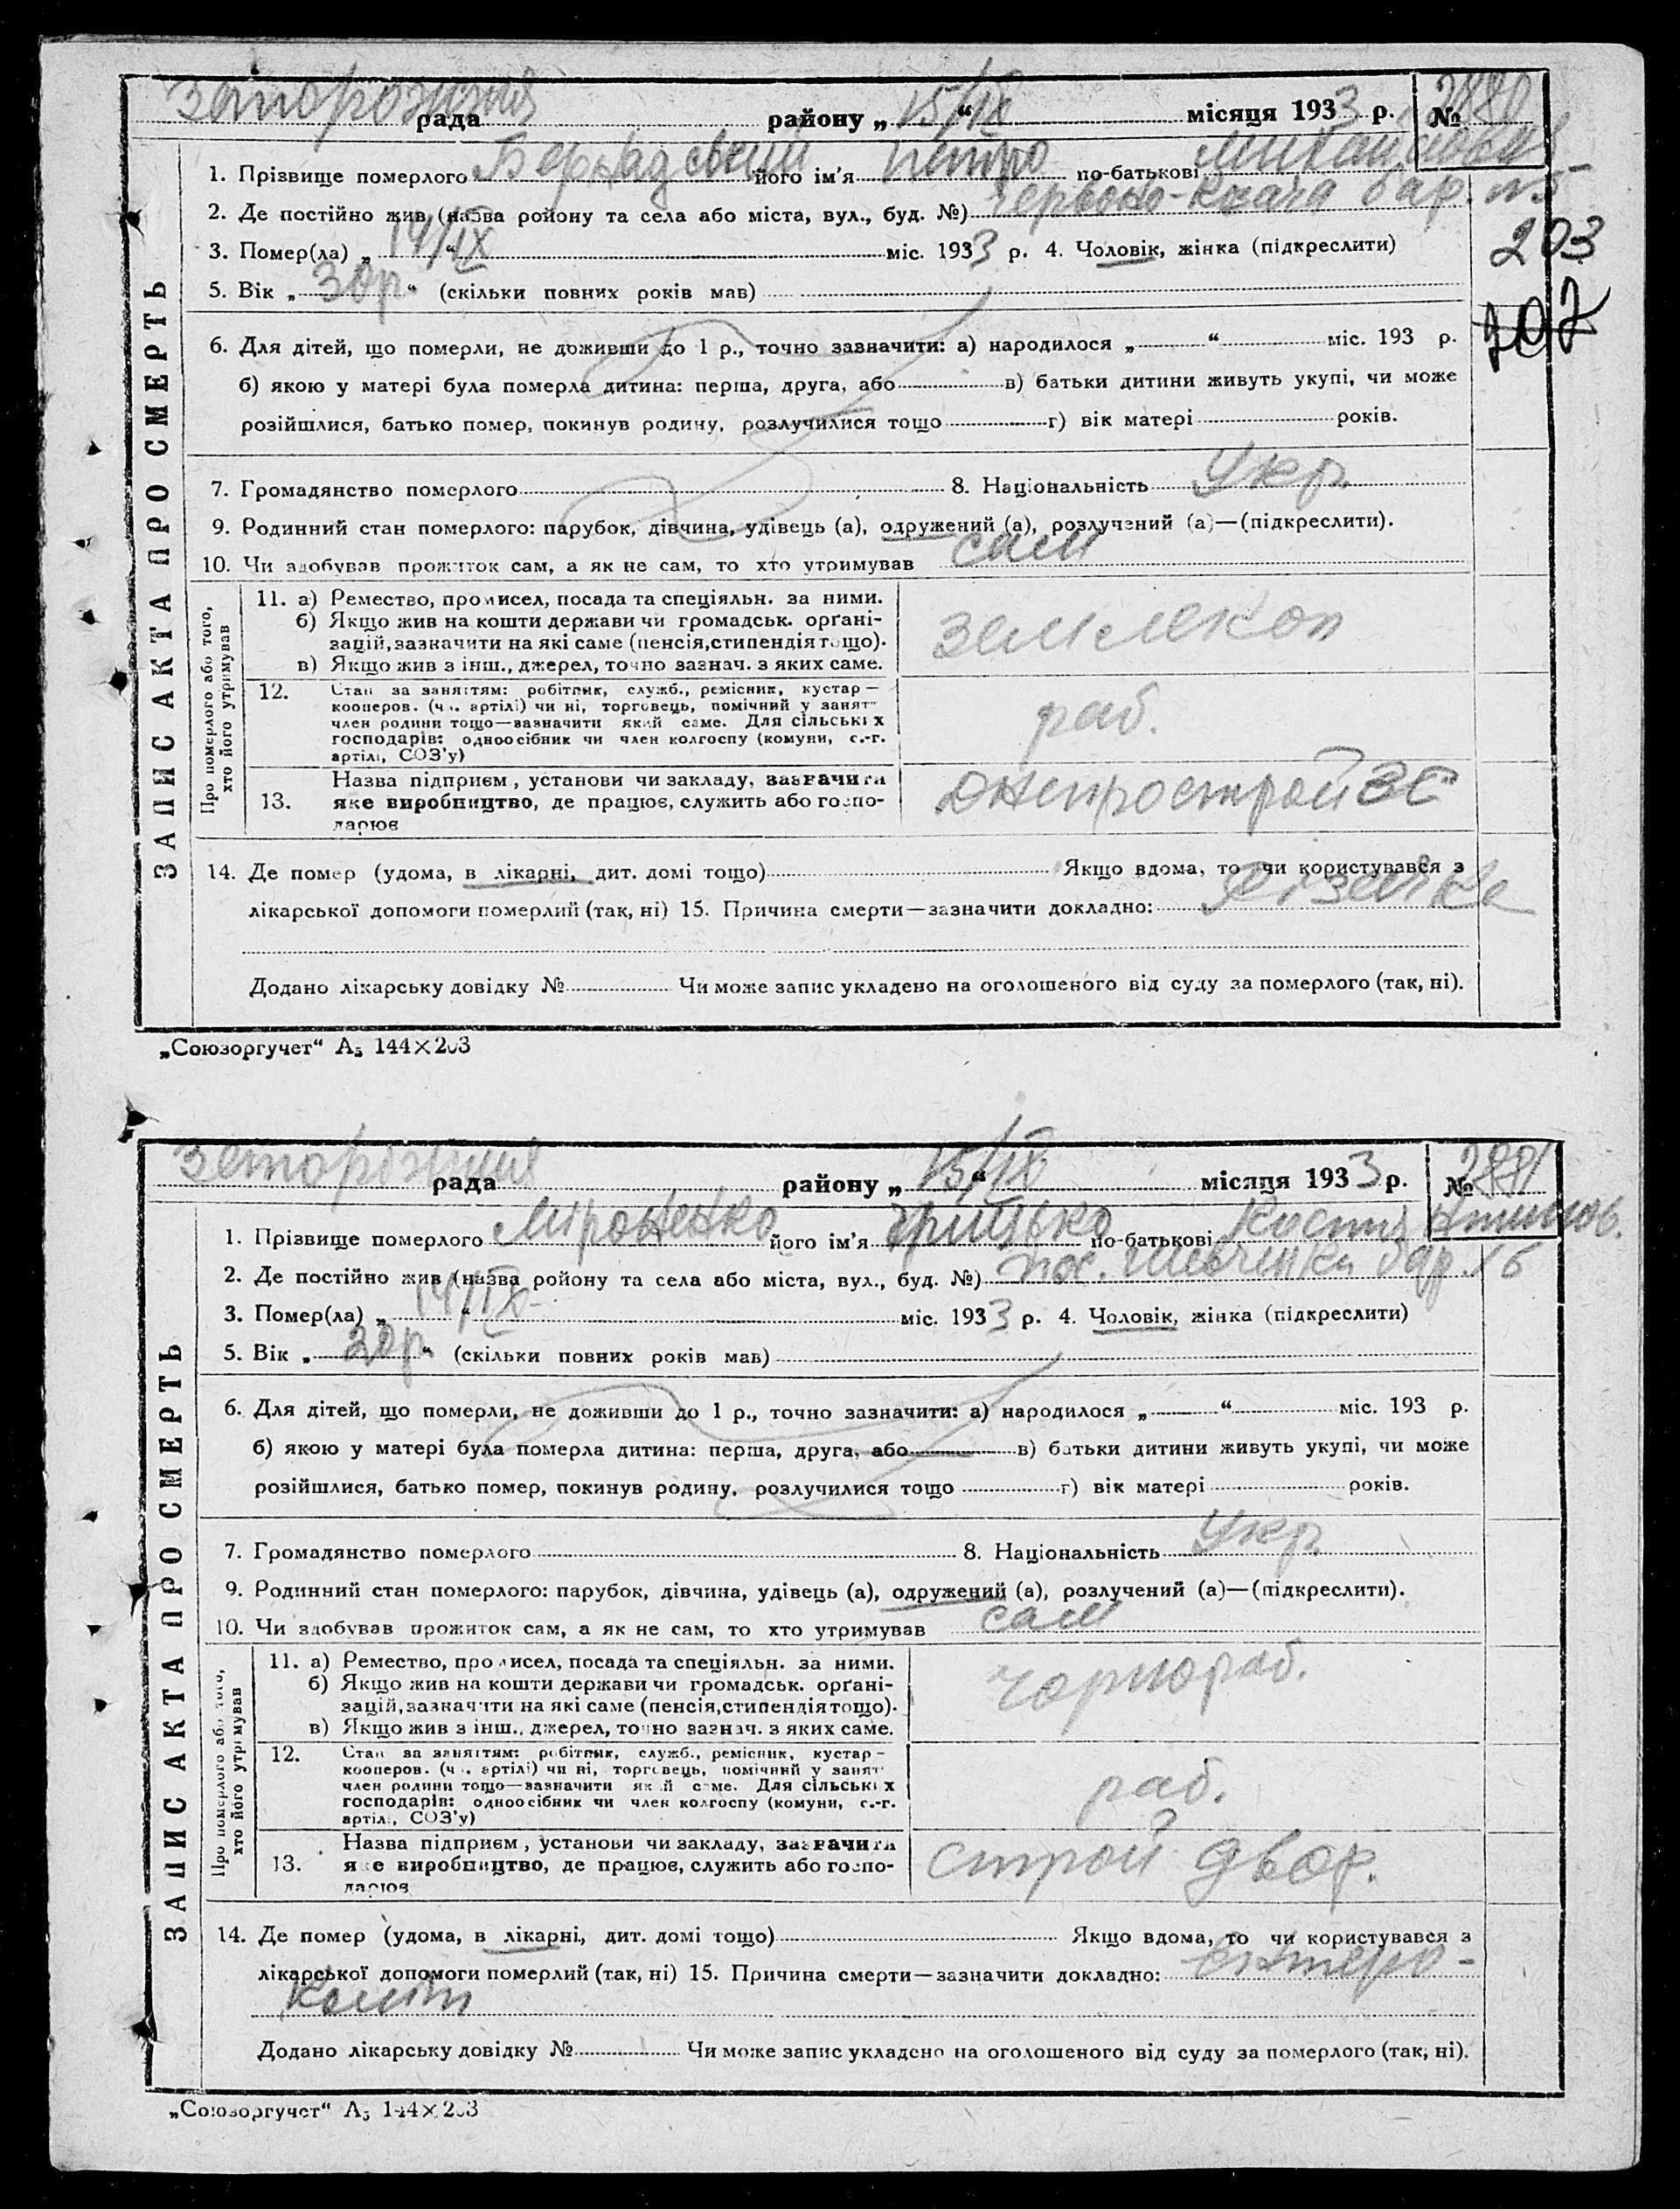 Запоріжжя рада району „ 15/IX “ місяця 1933 р. № 2880
1. Прізвище померлого його ім'я Петро по-батькові Михайлович
2. Де постійно жив (назва ройону та села або міста, вул., буд. №) Червоно-Кхата бар. №5
3. Помер(ла) „ 14/IX “ міс. 1933 р. 4. Чоловік, жінка (підкреслити)
203
5. Вік „ 30р. “ (скільки повних років мав)
207
6. Для дітей, що померли, не доживши до 1 р., точно зазначити: а) народилося „ “ міс. 193 р.
б) якою у матері була померла дитина: перша, друга, або в) батьки дитини живуть укупі, чи може
розійшлися, батько помер, покинув родину, розлучилися тощо г) вік матері років.
7. Громадянство померлого 8. Національність Укр.
9. Родинний стан померлого: парубок, дівчина, удівець (а), одружений (а), розлучений (а)—(підкреслити).
10. Чи здобував прожиток сам, а як не сам, то хто утримував сам
ЗАПИС АКТА ПРО СМЕРТЬ
Про померлого або того, хто його утримував
11. а) Ремество, промисел, посада та спеціяльн. за ними.
б) Якщо жив на кошти держави чи громадськ. орґані-
зацій, зазначити на які саме (пенсія, стипендія тощо).
в) Якщо жив з інш., джерел, точно зазнач. з яких саме.
землекоп
12. Стан за заняттям: робітник, служб., ремісник, кустар—
кооперов. (чл. артілі) чи ні, торговець, помічний у занят—
член родини тощо—зазначити який саме. Для сільських
господарів: одноосібник чи член колгоспу (комуни, с.-г.
артілі, СОЗ'у)
раб.
13. Назва підприєм, установи чи закладу, зазначити
яке виробництво, де працює, служить або госпо-
дарює
Днепрострой ЗС
14. Де помер (удома, в лікарні, дит. домі тощо) Якщо вдома, то чи користувався з
лікарської допомоги померлий (так, ні) 15. Причина смерти—зазначити докладно:
Додано лікарську довідку № Чи може запис укладено на оголошеного від суду за померлого (так, ні).
„Союзоргучет“ А5 144×203
Запоріжжя рада району „ 15/IX “ місяця 1933 р. № 2881
1. Прізвище померлого Міроненко його ім'я Грицько по-батькові Костянтинов.
2. Де постійно жив (назва ройону та села або міста, вул., буд. №) пос. Шевченка бар. 16
3. Помер(ла) „ 14/IX “ міс. 1933 р. 4. Чоловік, жінка (підкреслити)
5. Вік „ 30р. “ (скільки повних років мав)
6. Для дітей, що померли, не доживши до 1 р., точно зазначити: а) народилося „ “ міс. 193 р.
б) якою у матері була померла дитина: перша, друга, або в) батьки дитини живуть укупі, чи може
розійшлися, батько помер, покинув родину, розлучилися тощо г) вік матері років.
7. Громадянство померлого 8. Національність Укр.
9. Родинний стан померлого: парубок, дівчина, удівець (а), одружений (а), розлучений (а)—(підкреслити).
10. Чи здобував прожиток сам, а як не сам, то хто утримував сам
ЗАПИС АКТА ПРО СМЕРТЬ
Про померлого або того, хто його утримував
11. а) Ремество, промисел, посада та спеціяльн. за ними.
б) Якщо жив на кошти держави чи громадськ. орґані-
зацій, зазначити на які саме (пенсія, стипендія тощо).
в) Якщо жив з інш., джерел, точно зазнач. з яких саме.
чорнораб.
12. Стан за заняттям: робітник, служб., ремісник, кустар—
кооперов. (чл. артілі) чи ні, торговець, помічний у занят—
член родини тощо—зазначити який саме. Для сільських
господарів: одноосібник чи член колгоспу (комуни, с.-г.
артілі, СОЗ'у)
раб.
13. Назва підприєм, установи чи закладу, зазначити
яке виробництво, де працює, служить або госпо-
дарює
Строй двор.
14. Де помер (удома, в лікарні, дит. домі тощо) Якщо вдома, то чи користувався з
лікарської допомоги померлий (так, ні) 15. Причина смерти—зазначити докладно: ентеро-
коліт
Додано лікарську довідку № Чи може запис укладено на оголошеного від суду за померлого (так, ні).
„Союзоргучет“ А5 144×203